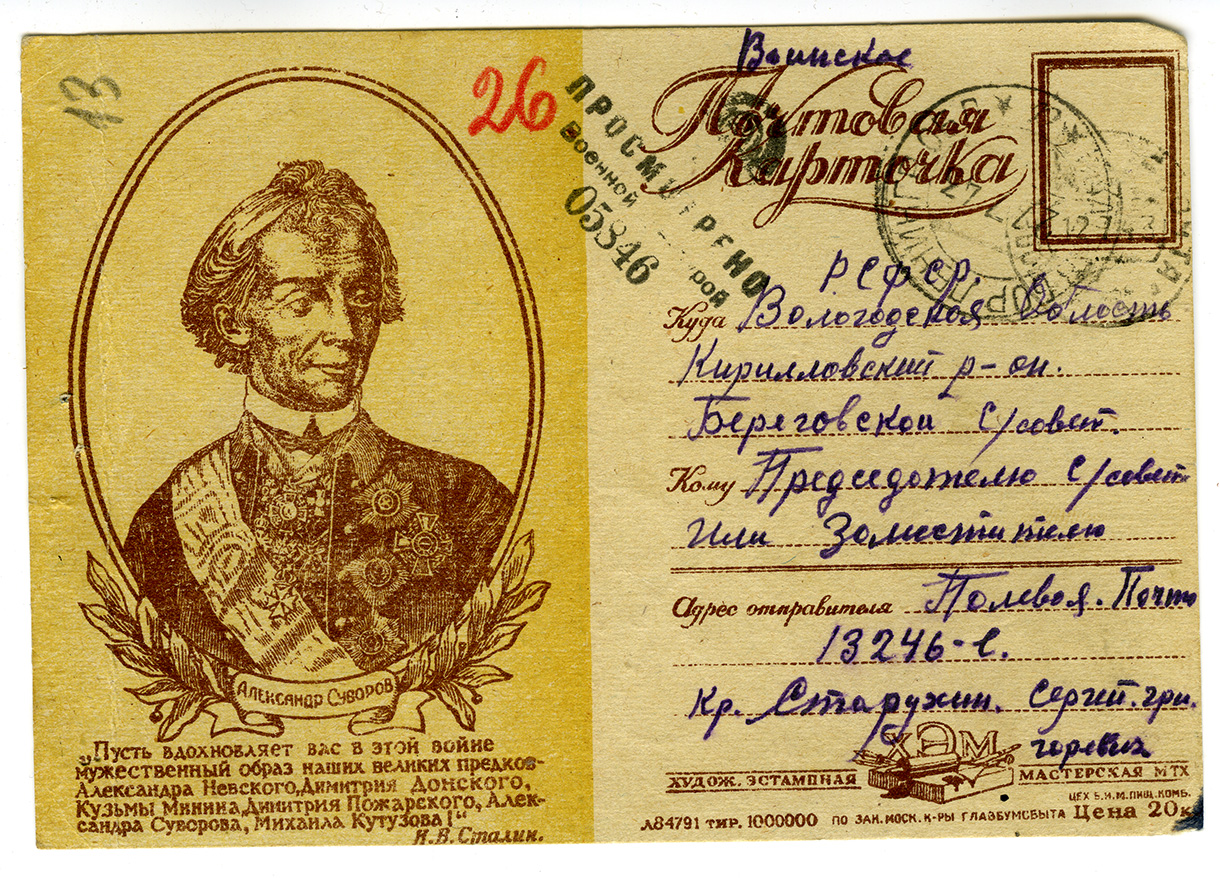 13
26
Воинское
Почтовая
Карточка
ПРОСМОТРЕНО
Военной
05846
РСФСР
Куда Вологодская область
Кирилловский р-он.
Береговской с/совет.
Кому Председателю с/совета
или Заместителю
Адрес отправителя Полевая. Почта
13246-е.
Кр. Старухин. Сергий. гри.
горевич
Александр Суворов
„Пусть вдохновляет вас в этой войне
мужественный образ наших великих предков-
Александра Невского, Димитрия Донского,
Кузьмы Минина, Димитрия Пожарского, Алек-
сандра Суворова, Михаила Кутузова!“
И.В. Сталин.
ХЭМ
ХУДОЖ. ЭСТАМПНАЯ МАСТЕРСКАЯ МТХ
ЦЕХ Б.И.М. ПИЩ. КОМБ.
Л84791 тир. 1000000 ПО ЗАК. МОСК. К-РЫ ГЛАВБУМСБЫТА Цена 20к